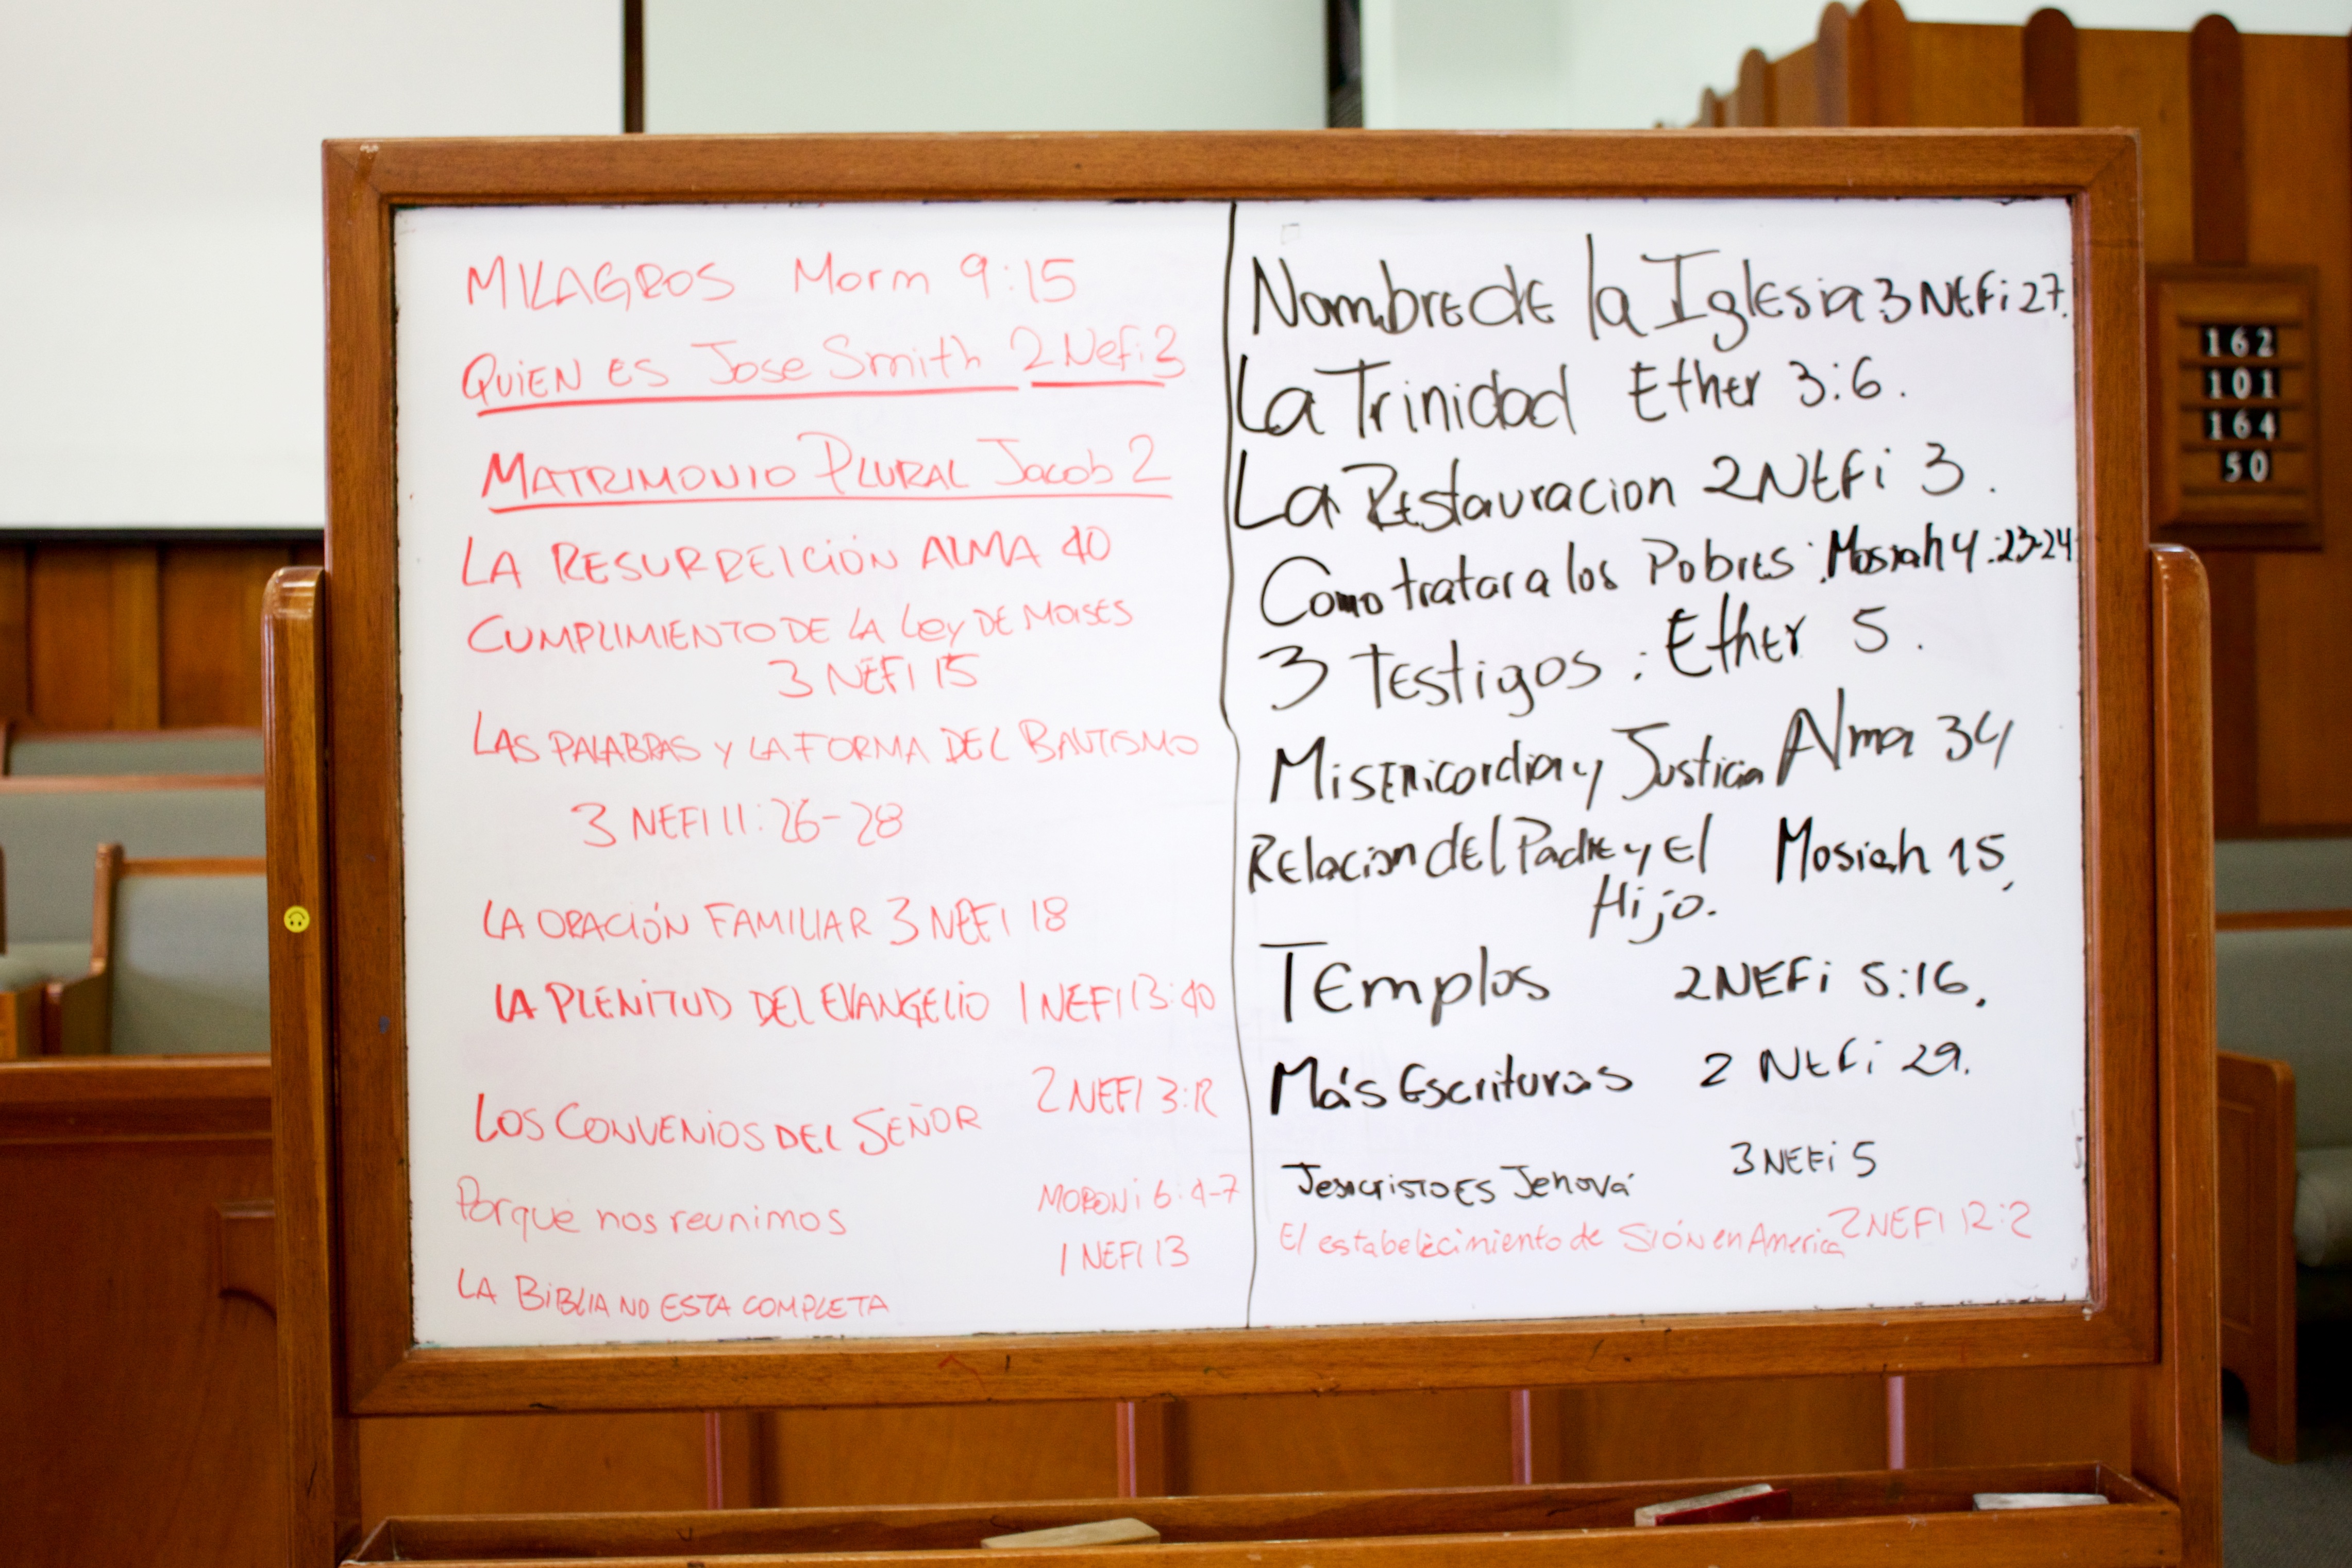 MILAGROS Morm 9:15
QUIEN ES Jose Smith 2 Nefi 3
MATRIMONIO PLURAL Jacob 2
LA RESURREICIÓN ALMA 40
CUMPLIMIENTO DE LA Ley DE MOISES
3 NEFI 15
LAS PALABRAS Y LA FORMA DEL BAUTISMO
3 NEFI 11:26-28
LA ORACIÓN FAMILIAR 3 NEFI 18
LA PLENITUD DEL EVANGELIO 1 NEFI 13:40
LOS CONVENIOS DEL SEÑOR 2 NEFI 3:12
Porque nos reunimos MORONi 6:4-7
LA BiBLIA NO ESTA COMPLETA 1 NEFI 13
Nombre de la Iglesia 3 NEFi 27.
La Trinidad Ether 3:6.
La Restauracion 2 NEFi 3.
Como tratar a los Pobres: Mosiah 4:23-24
3 Testigos: Ether 5.
Misericordia y Justicia Alma 34
Relacion del Padre y El Mosiah 15,
Hijo.
Templos 2 NEFi 5:16.
Más Escrituras 2 NEFi 29.
Jesucristo Es Jehová 3 NEFi 5
El estabelecimiento de SiÓN en America 2 NEFI 12:2
162
101
164
50